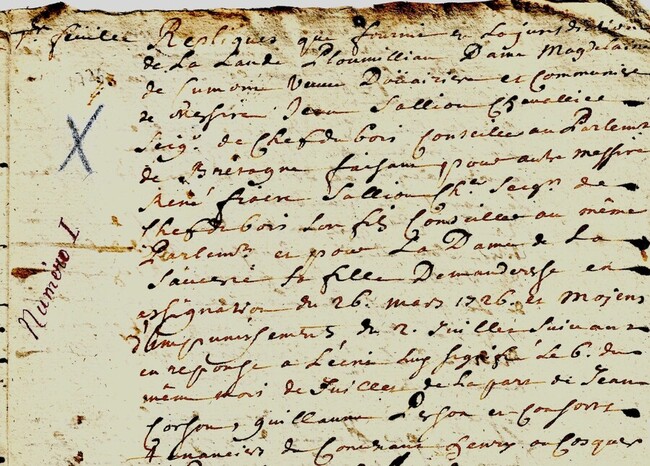 feuillee Repliques que fourni en La jurisdiction
de La Lande Ploumilliau Dame Magdelaine
de veuve Douairiere et Commune
de Messire Jean Salliou Chevallier
Seigr de Chef de bois Conseiller au Parlemt
de Bretagne faisant pour autre Messire
René Salliou Che Seigr de
Chef de bois son fils Conseiller au même
Parlemt et pour La Dame de La
Sa fille Demanderesse en
assignation du 26. mars 1726. et Mojens
d'impunissements du 2. Juillet suivant
en response a L'écrit Luy signifié Le 6. du
même mois de Juillet de La part de Jean
guillaume Person et Consorts
du Convenant
Numéro I
X